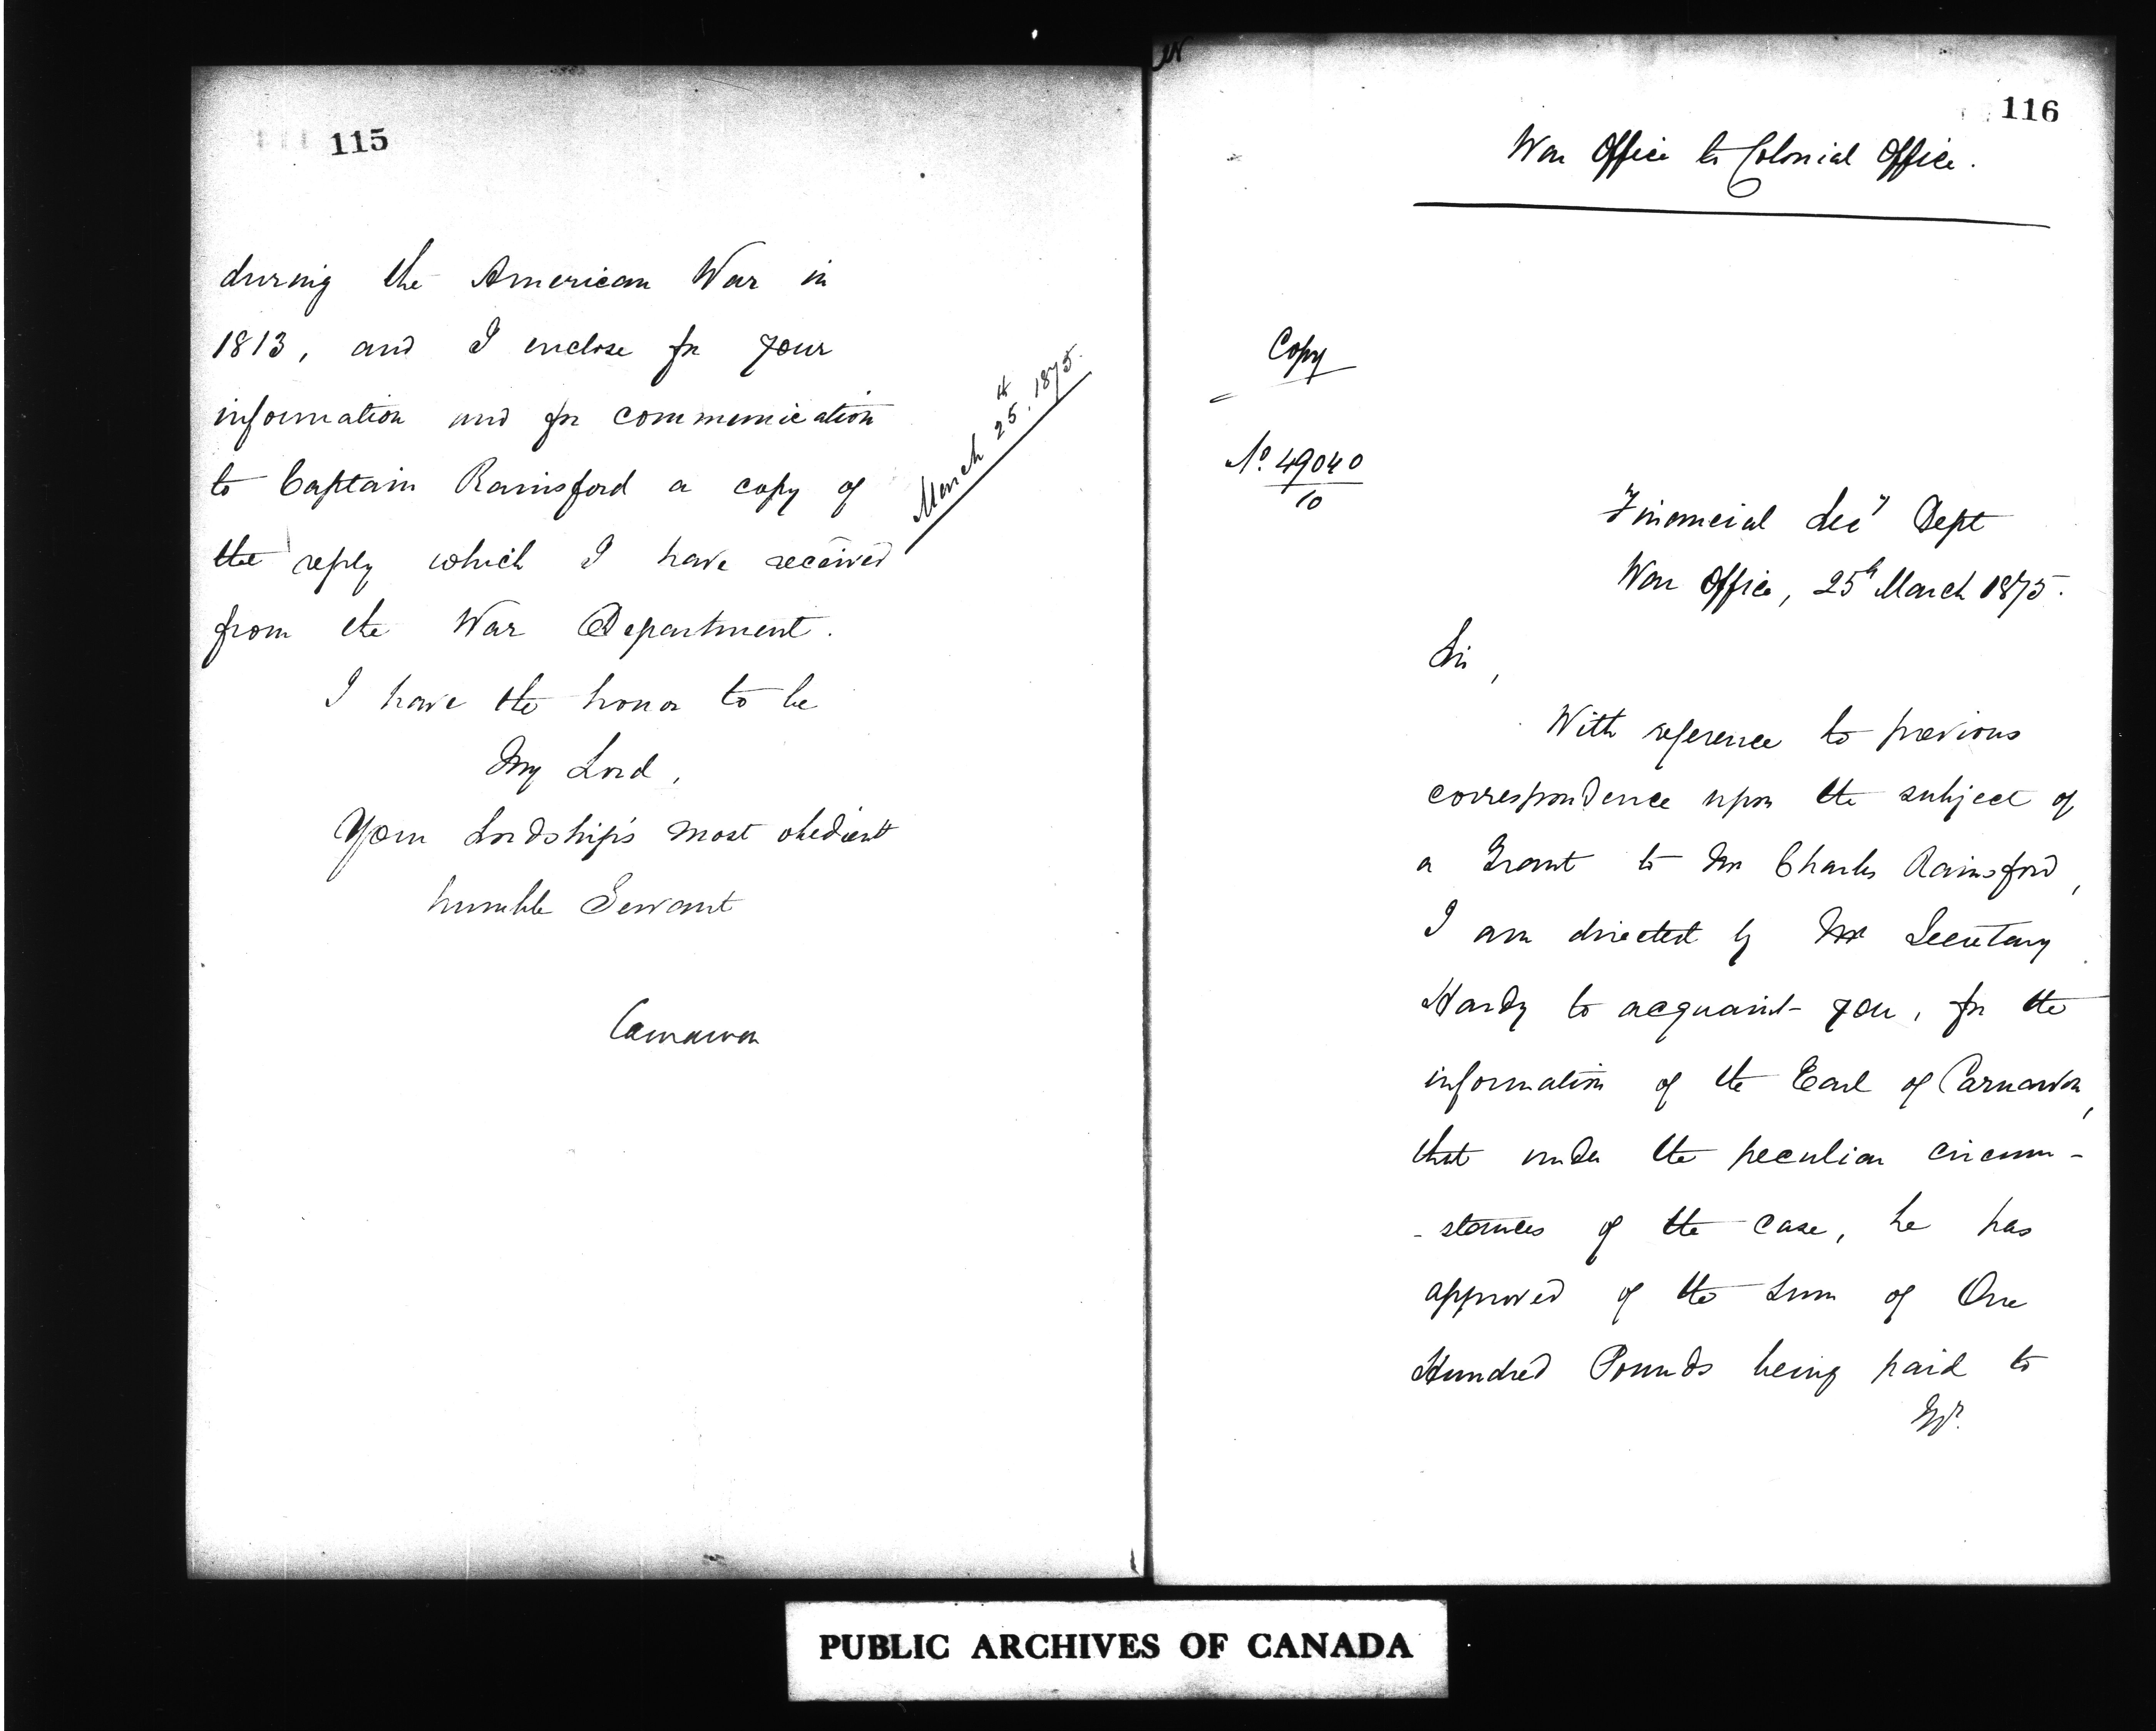 115
during the American War in
1813, and I enclose for your
information and for communication
to Captain Rainsford a copy of
the reply which I have received
from the War Department.
March 25th. 1875.
I have the honor to be
My Lord,
Your Lordship's most obedient
humble Servant
Carnarvon
116
War Office to Colonial Office.
Copy
No. 49040
10
Financial Secy Dept
War Office, 25th March 1875.
Sir,
With reference to previous
correspondence upon the subject of
a Grant to Mr Charles Rainsford,
I am directed by Mr Secretary
Hardy to acquaint you, for the
information of the Earl of Carnarvon,
that under the peculiar circum-
-stances of the case, he has
approved of the sum of One
Hundred Pounds being paid to
Mr.
PUBLIC ARCHIVES OF CANADA